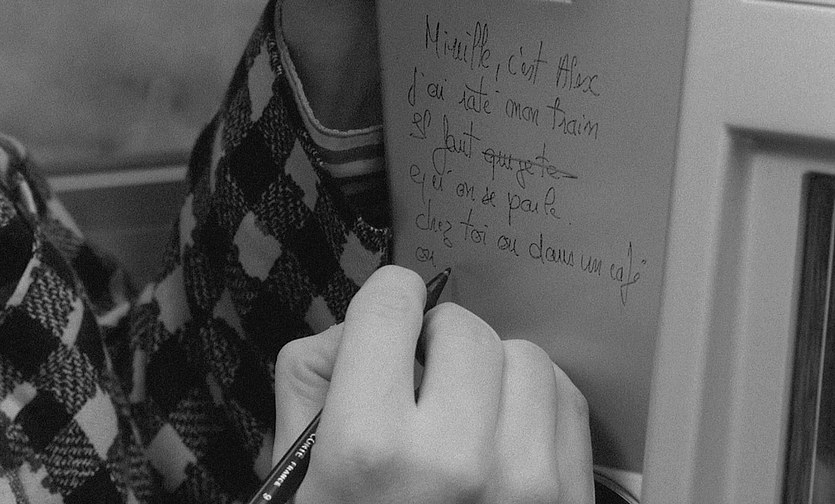 Mireille, c'est Alex
j'ai raté mon train
Il faut que je te
qu'on se parle.
chez toi ou dans un café
ou
CONTÉ FRANCE 9